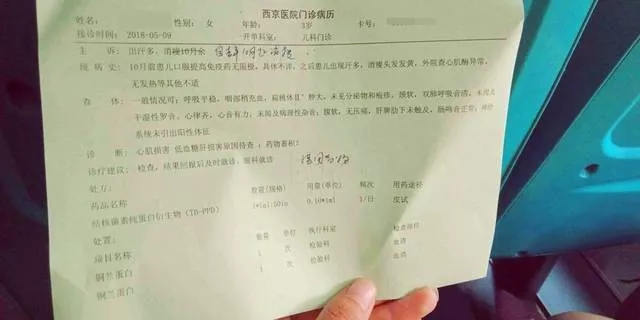 西京医院门诊病历
姓名： 性别： 女 年龄： 3岁 卡号：
接诊时间： 2018-05-09 开单科室： 儿科门诊
主 诉 出汗多，消瘦10月余
现 病 史： 10月前患儿口服提高免疫药无限极，具体不详，之后患儿出现汗多，消瘦头发发黄，外院查心肌酶异常，
无发热等其他不适
查 体： 一般情况可；呼吸平稳，咽部稍充血，扁桃体II°肿大，未见分泌物和疱疹，颈软，双肺呼吸音清，未闻及
干湿性罗音，心律齐，心音有力，未闻及病理性杂音；腹软，无压痛，肝脾肋下未触及，肠鸣音正常；神经
系统未引出阳性体征
诊 断： 心肌损害 低血糖肝损害原因待查 ；药物蓄积？
诊疗建议： 检查，结果回报后及时就诊，眼科就诊
处方：
药品名称 数量(规格) 用量(单位) 频次 用药途径
结核菌素纯蛋白衍生物（TB-PPD） 1*1ml:50iu 0.10*1ml 1/日 皮试
处置：
项目名称 数量 单位 执行科室 检查部位
铜兰蛋白 1 次 检验科 血清
铜兰蛋白 1 次 检验科 血清